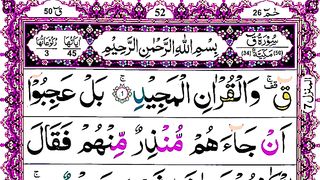 قٓ ٥٠
52
حٰمٓ 26
اٰيَاتُهَا 45
رُكُوْعَاتُهَا 3
سُوْرَةُ قٓ
مَكِّيَّةٌ (34) (50)
بِسْمِ اللّٰهِ الرَّحْمٰنِ الرَّحِيْمِ
قٓ ۚ وَالْقُرْاٰنِ الْمَجِيْدِ ۚ بَلْ عَجِبُوْٓا
اَنْ جَآءَهُمْ مُّنْذِرٌ مِّنْهُمْ فَقَالَ